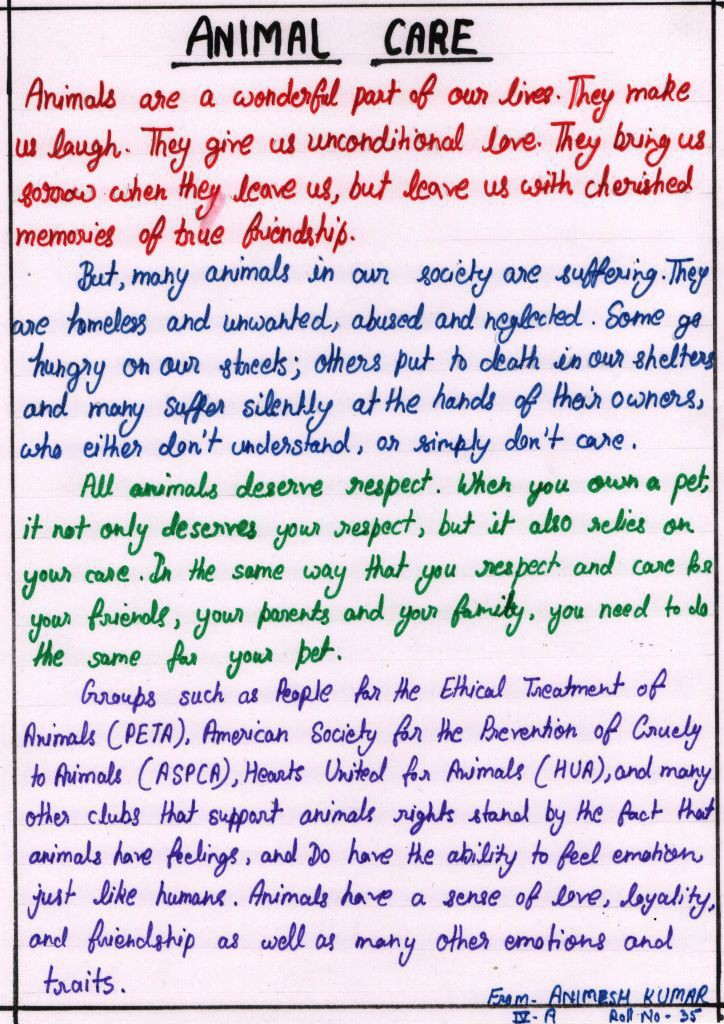 ANIMAL CARE
Animals are a wonderful part of our lives. They make
us laugh. They give us unconditional love. They bring us
sorrow when they leave us, but leave us with cherished
memories of true friendship.
But, many animals in our society are suffering. They
are homeless and unwanted, abused and neglected. Some go
hungry on our streets; others put to death in our shelters
and many suffer silently at the hands of their owners,
who either don't understand, or simply don't care.
All animals deserve respect. When you own a pet,
it not only deserves your respect, but it also relies on
your care. In the same way that you respect and care for
your friends, your parents and your family, you need to do
the same for your pet.
Groups such as People for the Ethical Treatment of
Animals (PETA), American Society for the Prevention of Cruely
to Animals (ASPCA), Hearts United for Animals (HUA), and many
other clubs that support animals rights stand by the fact that
animals have feelings, and Do have the ability to feel emotion
just like humans. Animals have a sense of love, loyality,
and friendship as well as many other emotions and
traits.
From- ANIMESH KUMAR
IV-A Roll No- 35